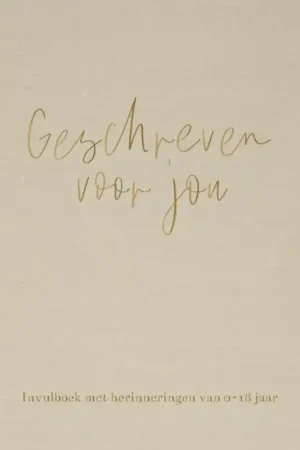 Geschreven
voor jou
Invulboek met herinneringen van 0-18 jaar